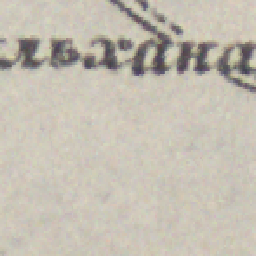 льхана